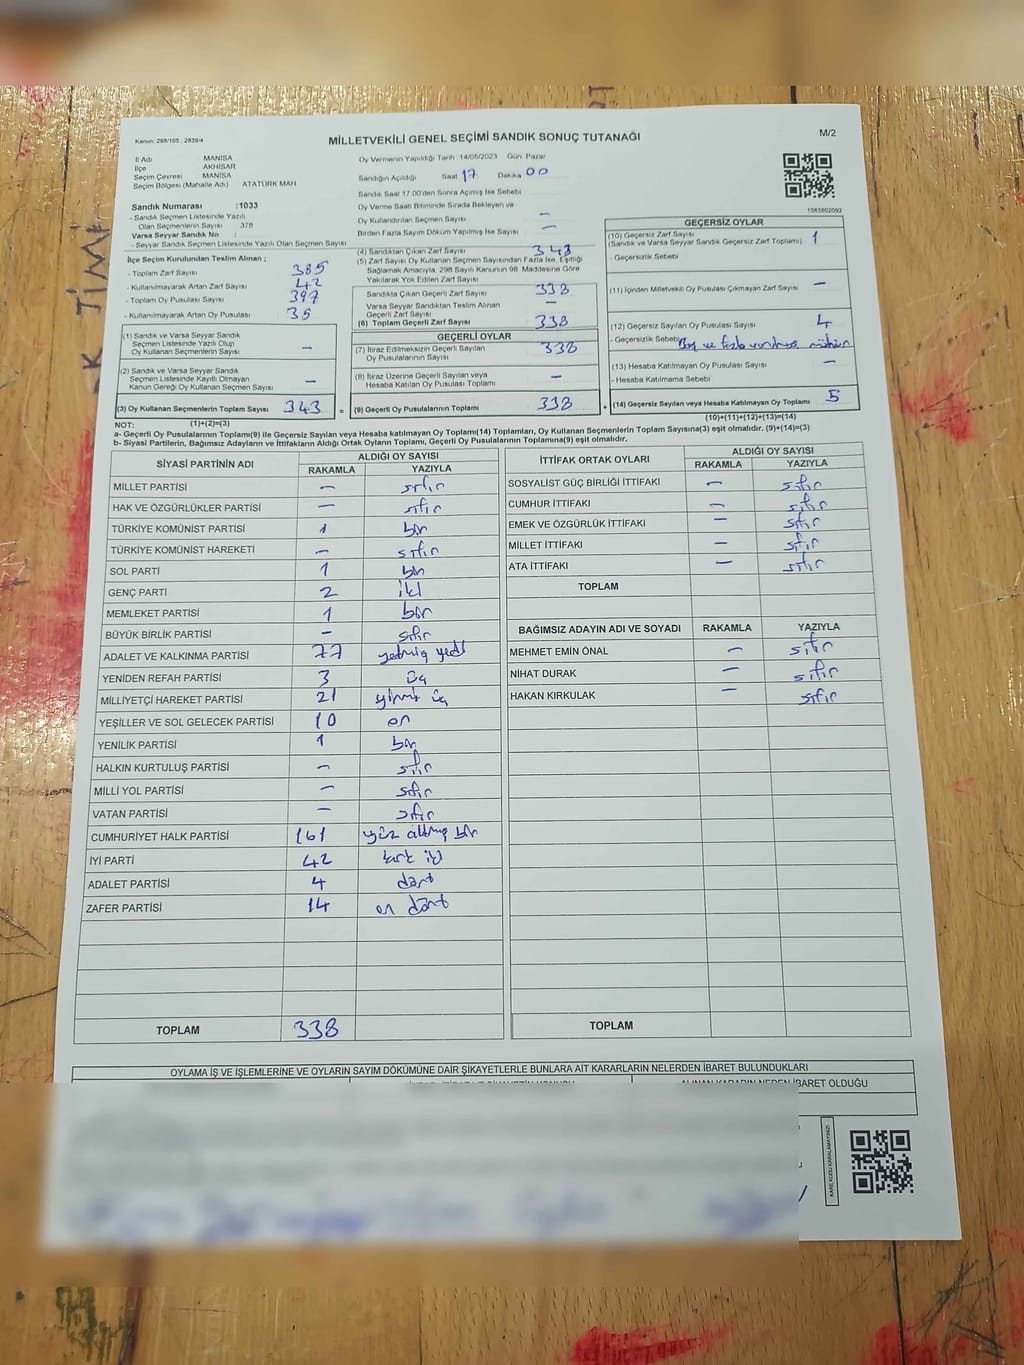 Kanun; 298/105 ; 2839/4
MİLLETVEKİLİ GENEL SEÇİMİ SANDIK SONUÇ TUTANAĞI
M/2
İl Adı MANİSA
İlçe AKHİSAR
Seçim Çevresi MANİSA
Seçim Bölgesi (Mahalle Adı) ATATÜRK MAH
Sandık Numarası :1033
- Sandık Seçmen Listesinde Yazılı
Olan Seçmenlerin Sayısı 378
Varsa Seyyar Sandık No :
- Seyyar Sandık Seçmen Listesinde Yazılı Olan Seçmen Sayısı
Oy Vermenin Yapıldığı Tarih 14/05/2023 Gün Pazar
Sandığın Açıldığı Saat 17 Dakika 00
Sandık Saat 17.00'den Sonra Açılmış İse Sebebi
Oy Verme Saati Bitiminde Sırada Bekleyen ve
Oy Kullandırılan Seçmen Sayısı —
Birden Fazla Sayım Döküm Yapılmış İse Sayısı —
1083802092
İlçe Seçim Kurulundan Teslim Alınan ;
- Toplam Zarf Sayısı 385
- Kullanılmayarak Artan Zarf Sayısı 42
- Toplam Oy Pusulası Sayısı 397
- Kullanılmayarak Artan Oy Pusulası 35
(1) Sandık ve Varsa Seyyar Sandık
Seçmen Listesinde Yazılı Olup
Oy Kullanan Seçmenlerin Sayısı —
(2) Sandık ve Varsa Seyyar Sandık
Seçmen Listesinde Kayıtlı Olmayan
Kanun Gereği Oy Kullanan Seçmen Sayısı —
(3) Oy Kullanan Seçmenlerin Toplam Sayısı 343
(1)+(2)=(3)
(4) Sandıktan Çıkan Zarf Sayısı 343
(5) Zarf Sayısı Oy Kullanan Seçmen Sayısından Fazla İse, Eşitliği
Sağlamak Amacıyla, 298 Sayılı Kanunun 98. Maddesine Göre
Yakılarak Yok Edilen Zarf Sayısı
Sandıkta Çıkan Geçerli Zarf Sayısı 338
Varsa Seyyar Sandıktan Teslim Alınan
Geçerli Zarf Sayısı —
(6) Toplam Geçerli Zarf Sayısı 338
GEÇERLİ OYLAR
(7) İtiraz Edilmeksizin Geçerli Sayılan
Oy Pusulalarının Sayısı 338
(8) İtiraz Üzerine Geçerli Sayılan veya
Hesaba Katılan Oy Pusulası Toplamı —
= (9) Geçerli Oy Pusulalarının Toplamı 338
GEÇERSİZ OYLAR
(10) Geçersiz Zarf Sayısı
(Sandık ve Varsa Seyyar Sandık Geçersiz Zarf Toplamı) 1
- Geçersizlik Sebebi
(11) İçinden Milletvekili Oy Pusulası Çıkmayan Zarf Sayısı —
(12) Geçersiz Sayılan Oy Pusulası Sayısı 4
- Geçersizlik Sebebi Boş ve fazla vurulmuş mühür
(13) Hesaba Katılmayan Oy Pusulası Sayısı —
- Hesaba Katılmama Sebebi
+ (14) Geçersiz Sayılan veya Hesaba Katılmayan Oy Toplamı 5
(10)+(11)+(12)+(13)=(14)
NOT:
a- Geçerli Oy Pusulalarının Toplamı(9) ile Geçersiz Sayılan veya Hesaba katılmayan Oy Toplamı(14) Toplamları, Oy Kullanan Seçmenlerin Toplam Sayısına(3) eşit olmalıdır. (9)+(14)=(3)
b- Siyasi Partilerin, Bağımsız Adayların ve İttifakların Aldığı Ortak Oyların Toplamı, Geçerli Oy Pusulalarının Toplamına(9) eşit olmalıdır.
SİYASİ PARTİNİN ADI ALDIĞI OY SAYISI
RAKAMLA YAZIYLA
MİLLET PARTİSİ — sıfır
HAK VE ÖZGÜRLÜKLER PARTİSİ — sıfır
TÜRKİYE KOMÜNİST PARTİSİ 1 bir
TÜRKİYE KOMÜNİST HAREKETİ — sıfır
SOL PARTİ 1 bir
GENÇ PARTİ 2 iki
MEMLEKET PARTİSİ 1 bir
BÜYÜK BİRLİK PARTİSİ — sıfır
ADALET VE KALKINMA PARTİSİ 77 yetmiş yedi
YENİDEN REFAH PARTİSİ 3 üç
MİLLİYETÇİ HAREKET PARTİSİ 21 yirmi üç
YEŞİLLER VE SOL GELECEK PARTİSİ 10 on
YENİLİK PARTİSİ 1 bir
HALKIN KURTULUŞ PARTİSİ — sıfır
MİLLİ YOL PARTİSİ — sıfır
VATAN PARTİSİ — sıfır
CUMHURİYET HALK PARTİSİ 161 yüz altmış bir
İYİ PARTİ 42 kırk iki
ADALET PARTİSİ 4 dört
ZAFER PARTİSİ 14 on dört
TOPLAM 338
İTTİFAK ORTAK OYLARI ALDIĞI OY SAYISI
RAKAMLA YAZIYLA
SOSYALİST GÜÇ BİRLİĞİ İTTİFAKI — sıfır
CUMHUR İTTİFAKI — sıfır
EMEK VE ÖZGÜRLÜK İTTİFAKI — sıfır
MİLLET İTTİFAKI — sıfır
ATA İTTİFAKI — sıfır
TOPLAM
BAĞIMSIZ ADAYIN ADI VE SOYADI RAKAMLA YAZIYLA
MEHMET EMİN ÖNAL — sıfır
NİHAT DURAK — sıfır
HAKAN KIRKULAK — sıfır
TOPLAM
OYLAMA İŞ VE İŞLEMLERİNE VE OYLARIN SAYIM DÖKÜMÜNE DAİR ŞİKAYETLERLE BUNLARA AİT KARARLARIN NELERDEN İBARET BULUNDUKLARI
ALINAN KARARIN NEDEN İBARET OLDUĞU
KARE KODU KARALAMAYINIZ!